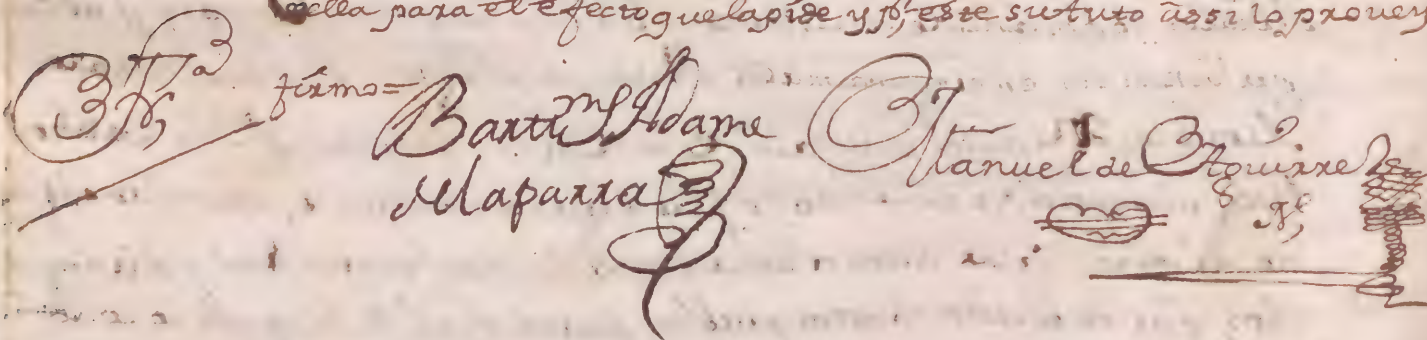 della para el efecto que la pide y pr este su auto assi lo proueyo
firmo =
Bartme Adame
de la parra
Manuel de Aguirre